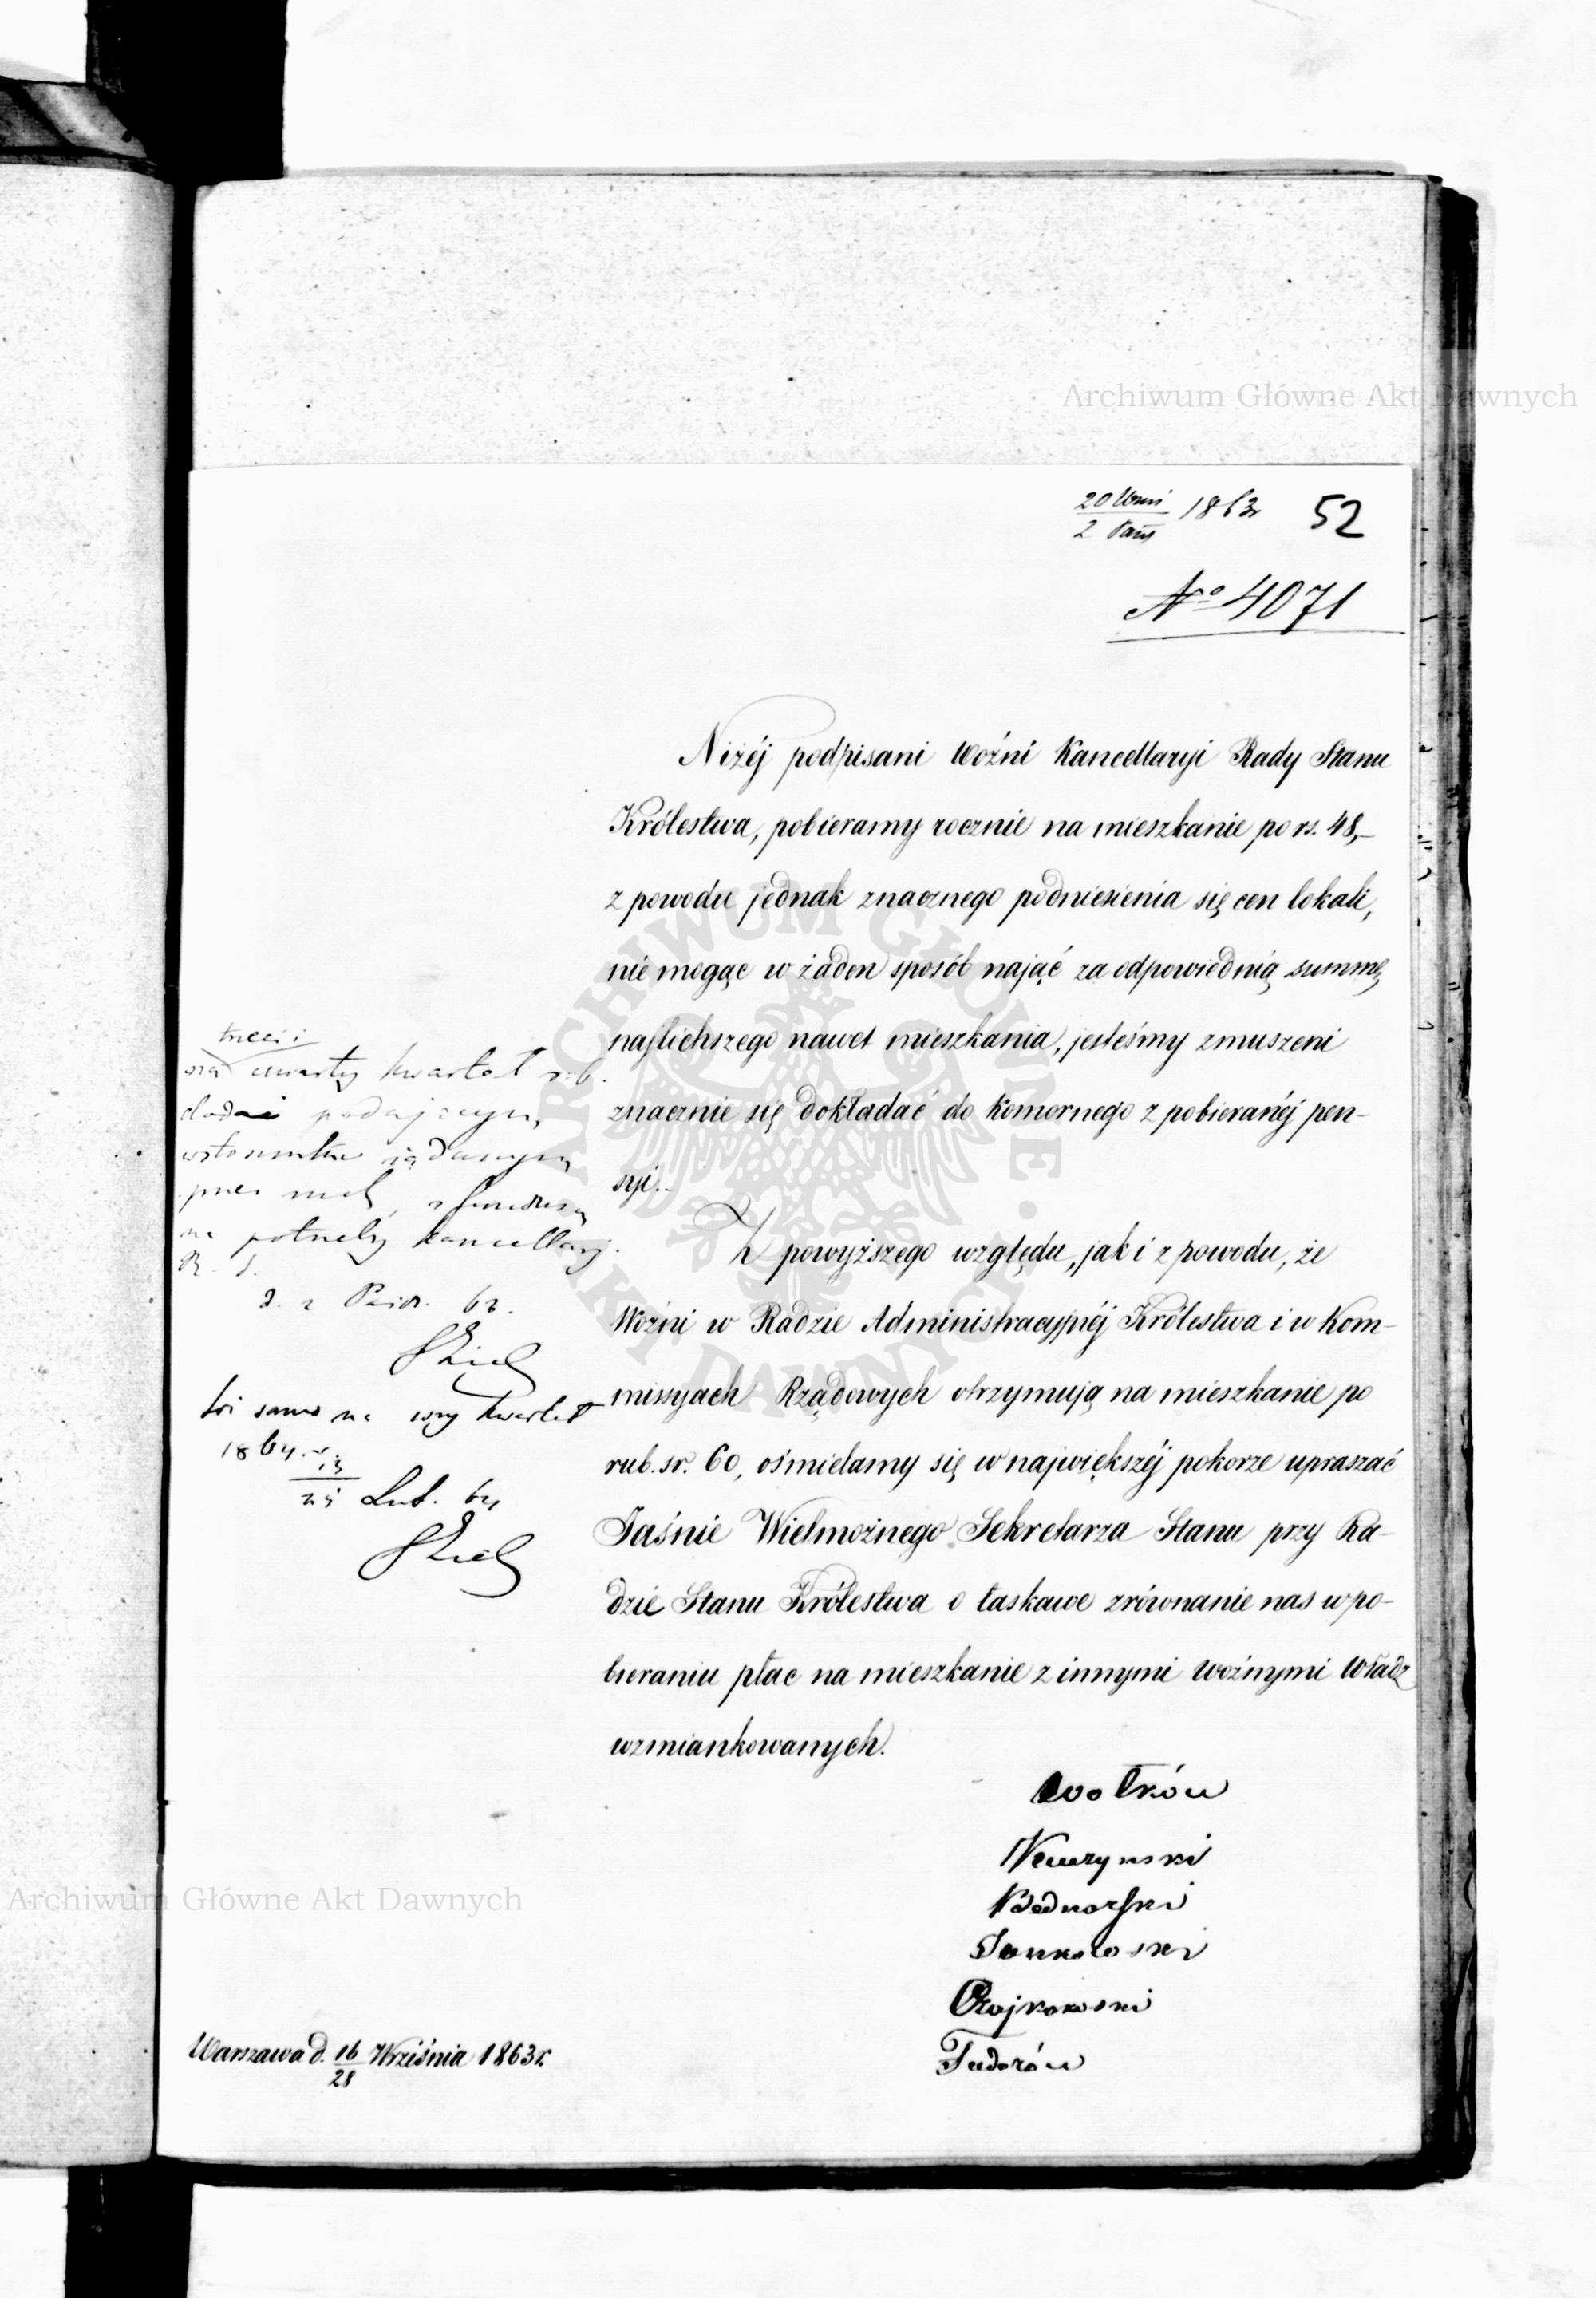 20 Wrzś 1863r 52
2 Paź
No 4071
Niżéj podpisani Woźni Kancellaryi Rady Stanu
Królestwa, pobieramy rocznie na mieszkanie po rs. 48,–
z powodu jednak znacznego podniesienia się cen lokali,
nie mogąc w żaden sposób nająć za odpowiednią summę
najlichszego nawet mieszkania, jesteśmy zmuszeni
znacznie się dokładać do komornego z pobieranéj pen-
syi.
Z powyższego względu, jak i z powodu, że
Woźni w Radzie Administracyjnéj Królestwa i w Kom-
missyach Rządowych otrzymują na mieszkanie po
rub. sr. 60, ośmielamy się w największéj pokorze upraszać
Jaśnie Wielmożnego Sekretarza Stanu przy Ra-
dzie Stanu Królestwa o łaskawe zrównanie nas w po-
bieraniu płac na mieszkanie z innymi woźnymi Władz
wzmiankowanych.
Wołków
Bednarski
Jankowski
Czajkowski
Fudorów
Warszawa d. 16/28 Września 1863r.
trzeci i
na czwarty kwartał r. b.
dodać podającym,
w stosunku żądanym
przez nich, z funduszu
na potrzeby kancellaryi
R. S.
d. 2 Paźdz. 63.
toż samo na kwartał
1864 r.
13/25 Lut. 64
Archiwum Główne Akt Dawnych
Archiwum Główne Akt Dawnych
ARCHIWUM GŁÓWNE AKT DAWNYCH